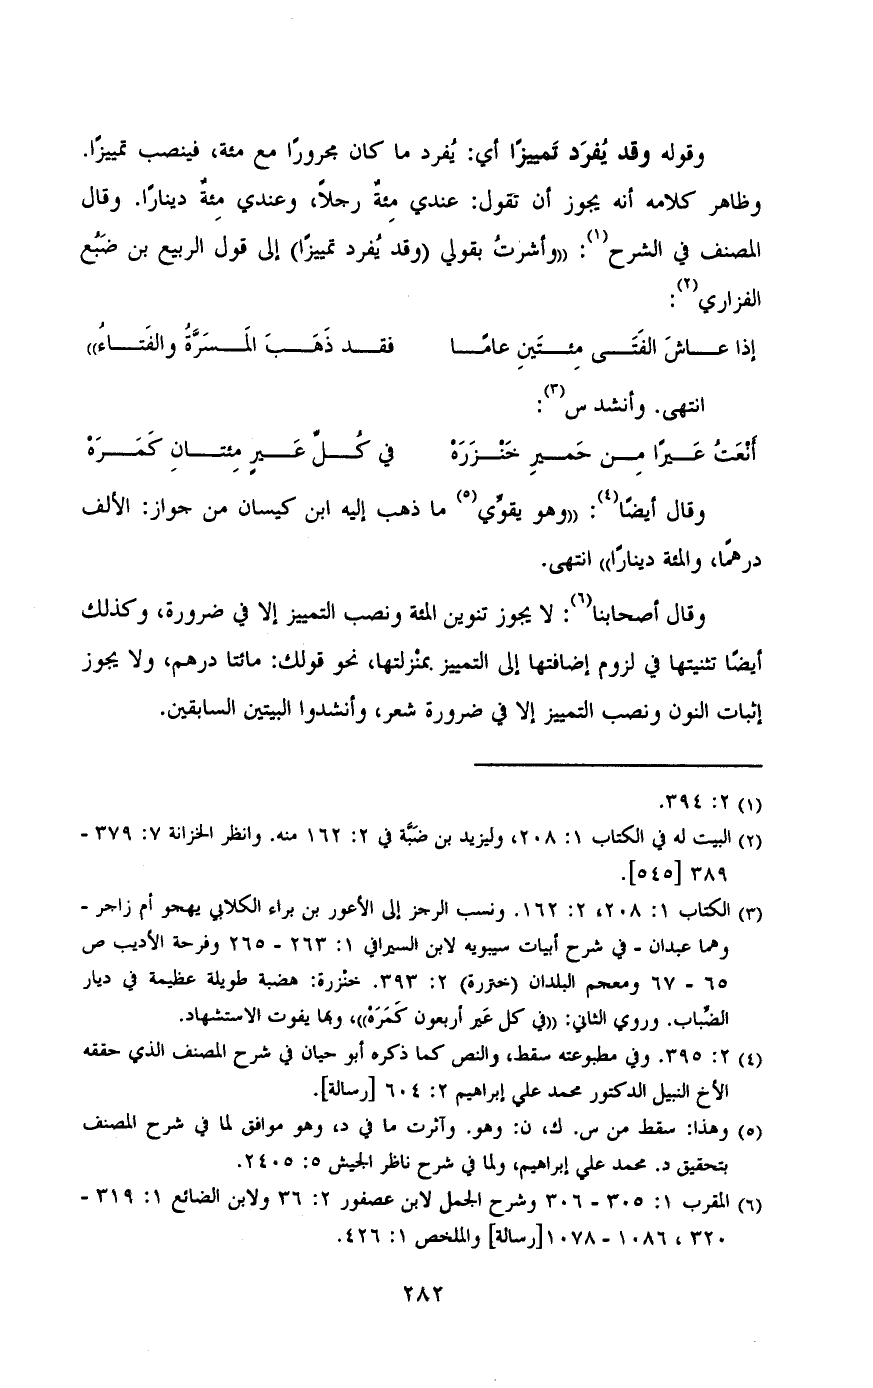 وقوله وقد يُفرَد تَمييزًا أي: يُفرد ما كان مجرورًا مع مئة، فينصب تمييزًا.
وظاهر كلامه أنه يجوز أن تقول: عندي مِئةٌ رجلاً، وعندي مِئةٌ دينارًا. وقال
المصنف في الشرح(١): ((وأشرتُ بقولي (وقد يُفرد تمييزًا) إلى قول الربيع بن ضَبُع
الفزاري(٢):
إذا عـــاشَ الفَتَـــى مِئـــتَينِ عامًـــا فقـــد ذَهَـــبَ المَـــسَرَّةُ والفَتـــاءُ))
انتهى. وأنشد س(٣):
أَنْعَتُ عَـــيرًا مِـــن حَمـــيرِ خَنْـــزَرَهْ في كُـــلِّ عَـــيرٍ مِئتـــانِ كَمَـــرَهْ
وقال أيضًا(٤): ((وهو يقوِّي(٥) ما ذهب إليه ابن كيسان من جواز: الألف
درهمًا، والمئة دينارًا)) انتهى.
وقال أصحابنا(٦): لا يجوز تنوين المئة ونصب التمييز إلا في ضرورة، وكذلك
أيضًا تثنيتها في لزوم إضافتها إلى التمييز بمنْزلتها، نحو قولك: مائتا درهم، ولا يجوز
إثبات النون ونصب التمييز إلا في ضرورة شعر، وأنشدوا البيتين السابقين.
(١) ٢: ٣٩٤.
(٢) البيت له في الكتاب ١: ٢٠٨، وليزيد بن ضَبَّة في ٢: ١٦٢ منه. وانظر الخزانة ٧: ٣٧٩ -
٣٨٩ [٥٤٥].
(٣) الكتاب ١: ٢٠٨، ٢: ١٦٢. ونسب الرجز إلى الأعور بن براء الكلابي يهجو أم زاجر -
وهما عبدان - في شرح أبيات سيبويه لابن السيرافي ١: ٢٦٣ - ٢٦٥ وفرحة الأديب ص
٦٥ - ٦٧ ومعجم البلدان (خنزرة) ٢: ٣٩٣. خنْزرة: هضبة طويلة عظيمة في ديار
الضِّباب. وروي الثاني: ((في كل عَير أربعون كَمَرَهْ))، وبها يفوت الاستشهاد.
(٤) ٢: ٣٩٥. وفي مطبوعته سقط، والنص كما ذكره أبو حيان في شرح المصنف الذي حققه
الأخ النبيل الدكتور محمد علي إبراهيم ٢: ٦٠٤ [رسالة].
(٥) وهذا: سقط من س. ك، ن: وهو. وآثرت ما في د، وهو موافق لما في شرح المصنف
بتحقيق د. محمد علي إبراهيم، ولما في شرح ناظر الجيش ٥: ٢٤٠٥.
(٦) المقرب ١: ٣٠٥ - ٣٠٦ وشرح الجمل لابن عصفور ٢: ٣٦ ولابن الضائع ١: ٣١٩ -
٣٢٠، ١٠٨٦ - ١٠٧٨ [رسالة] والملخص ١: ٤٢٦.
٢٨٢